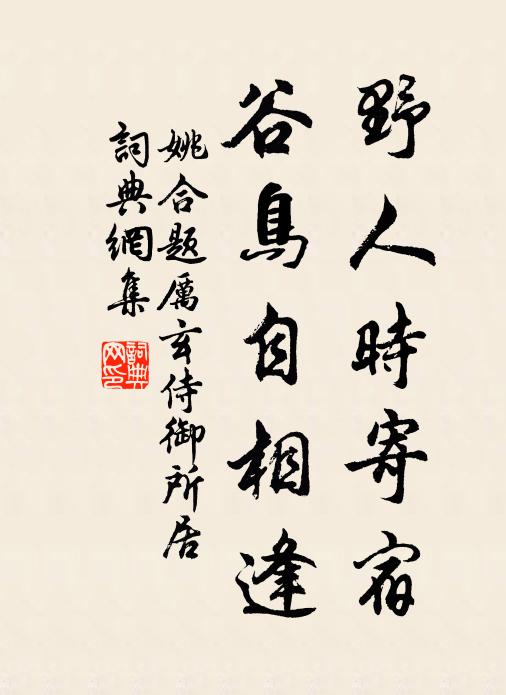 野人時寄宿
谷鳥自相逢
姚合題厲玄侍御所居
詞典網集
詞典
网印